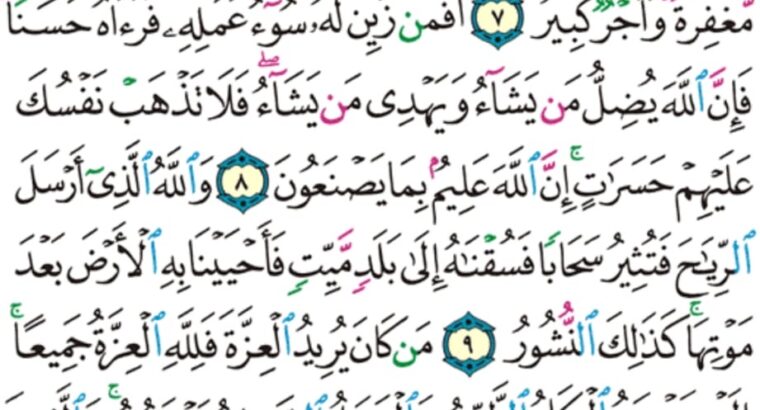 مَّغْفِرَةٌ وَأَجْرٌ كَبِيرٌ ٧ أَفَمَن زُيِّنَ لَهُۥ سُوٓءُ عَمَلِهِۦ فَرَءَاهُ حَسَنًا
فَإِنَّ ٱللَّهَ يُضِلُّ مَن يَشَآءُ وَيَهْدِى مَن يَشَآءُ ۖ فَلَا تَذْهَبْ نَفْسُكَ
عَلَيْهِمْ حَسَرَٰتٍ ۚ إِنَّ ٱللَّهَ عَلِيمٌۢ بِمَا يَصْنَعُونَ ٨ وَٱللَّهُ ٱلَّذِىٓ أَرْسَلَ
ٱلرِّيَٰحَ فَتُثِيرُ سَحَابًا فَسُقْنَٰهُ إِلَىٰ بَلَدٍ مَّيِّتٍ فَأَحْيَيْنَا بِهِ ٱلْأَرْضَ بَعْدَ
مَوْتِهَا ۚ كَذَٰلِكَ ٱلنُّشُورُ ٩ مَن كَانَ يُرِيدُ ٱلْعِزَّةَ فَلِلَّهِ ٱلْعِزَّةُ جَمِيعًا ۚ